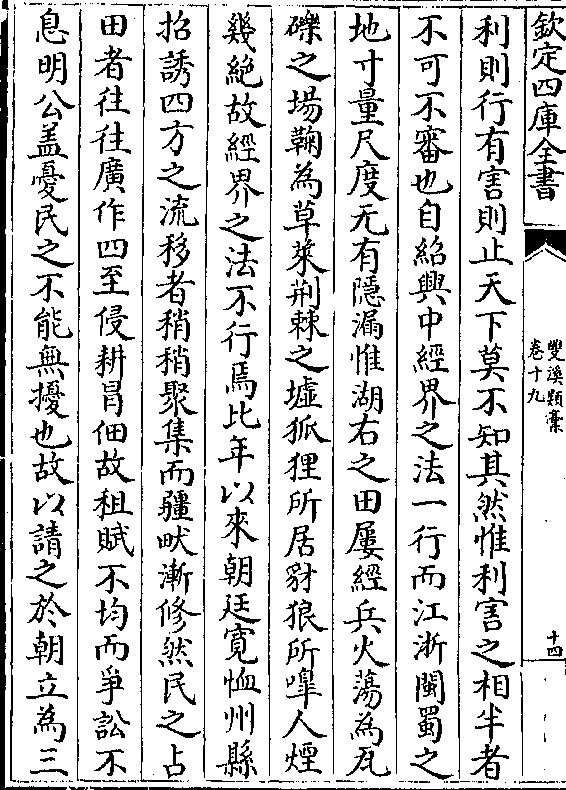 欽定四庫全書
雙溪類稾
卷十九
十四
利則行有害則止天下莫不知其然惟利害之相半者
不可不審也自紹興中經界之法一行而江浙閩蜀之
地寸量尺度无有隱漏惟湖右之田屢經兵火蕩為瓦
礫之場鞠為草萊荆棘之墟狐狸所居豺狼所嘷人煙
幾絶故經界之法不行焉比年以來朝廷寛恤州縣
招誘四方之流移者稍稍聚集而疆畎漸修然民之占
田者往往廣作四至侵耕冒佃故租賦不均而爭訟不
息明公盖憂民之不能無擾也故以請之於朝立為三